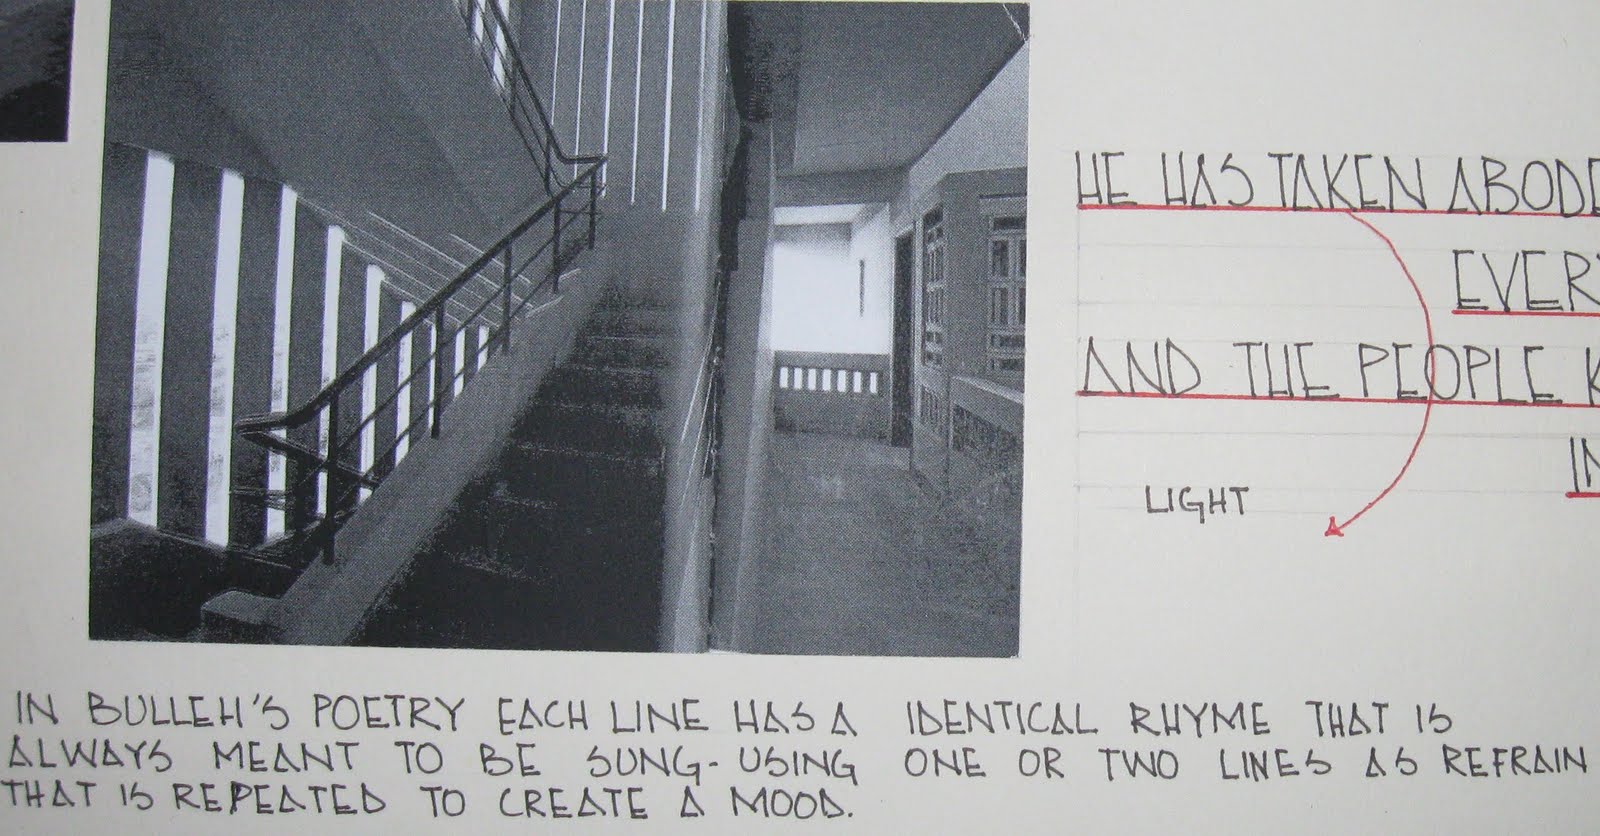 HE HAS TAKEN ABODE
EVERY
AND THE PEOPLE K
IN
LIGHT
IN BULLEH'S POETRY EACH LINE HAS A IDENTICAL RHYME THAT IS
ALWAYS MEANT TO BE SUNG - USING ONE OR TWO LINES AS REFRAIN
THAT IS REPEATED TO CREATE A MOOD.